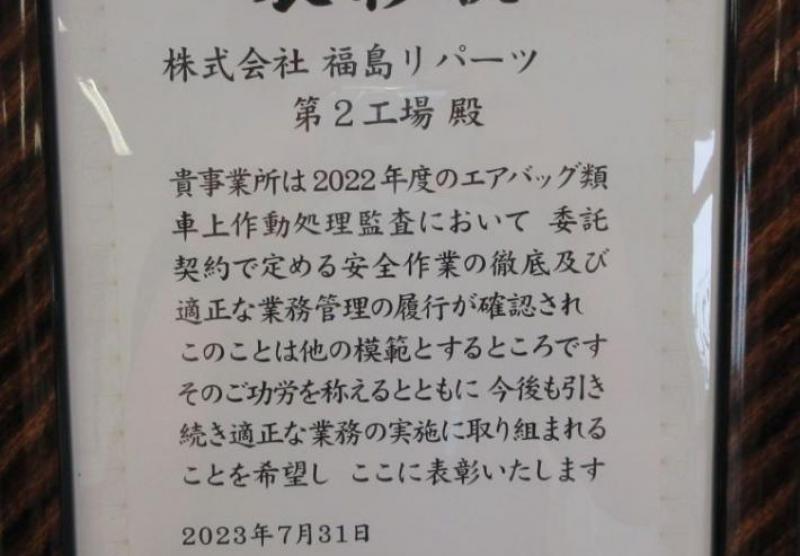 株式会社 福島リパーツ
第2工場 殿
貴事業所は2022年度のエアバッグ類
車上作動処理監査において 委託
契約で定める安全作業の徹底及び
適正な業務管理の履行が確認され
このことは他の模範とするところです
そのご功労を称えるとともに 今後も引き
続き適正な業務の実施に取り組まれる
ことを希望し ここに表彰いたします
2023年7月31日